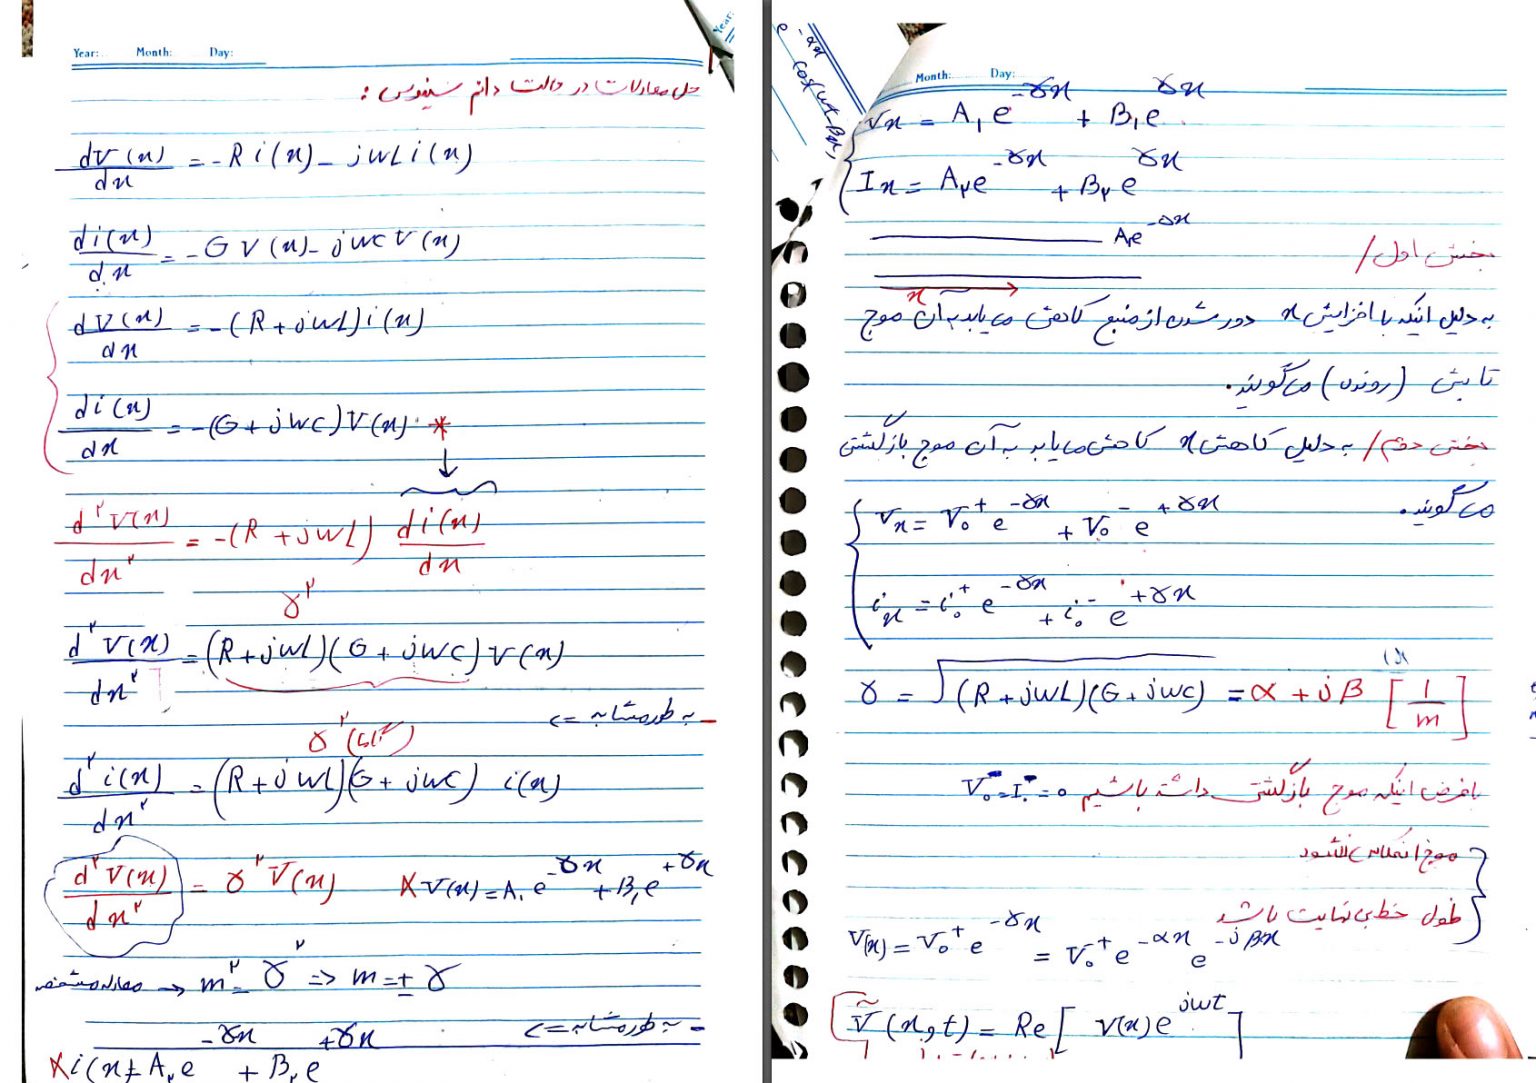 Year: Month: Day:
حل معادلات در حالت دائم سینوسی :
dV(x)/dx = -R i(x) - jωL i(x)
di(x)/dx = -G V(x) - jωC V(x)
dV(x)/dx = -(R+jωL) i(x)
di(x)/dx = -(G+jωC) V(x) *
d²V(x)/dx² = -(R+jωL) di(x)/dx
γ²
d²V(x)/dx² = (R+jωL)(G+jωC) V(x)
به طور مشابه =>
γ² (گاما)
d²i(x)/dx² = (R+jωL)(G+jωC) i(x)
d²V(x)/dx² = γ² V(x) * V(x) = A₁e^-γx + B₁e^+γx
معادله مشخصه → m² = γ² => m = ± γ
- به طور مشابه =>
* i(x) = A₂e^-γx + B₂e^+γx
e^-αx cos(ωt-βx)
Year:
Month: Day:
Vx = A₁e^-γx + B₁e^γx
Ix = A₂e^-γx + B₂e^γx
A₁e^-γx
بخش اول /
x
به دلیل اینکه با افزایش x دور شدن از منبع کاهش می یابد به آن موج
تابش (رونده) می گویند.
بخش دوم / به دلیل کاهش x کاهش می یابد به آن موج بازگشتی
می گویند.
Vx = V₀⁺ e^-γx + V₀⁻ e^+γx
ix = i₀⁺ e^-γx + i₀⁻ e^+γx
γ = √(R+jωL)(G+jωC) = α + jβ [1/m]
با فرض اینکه موج بازگشتی نداشته باشیم V₀⁻ = I₀⁻ = 0
موج انعکاس نشود
طول خط بی نهایت باشد
V(x) = V₀⁺ e^-γx = V₀⁺ e^-αx e^-jβx
Ṽ(x,t) = Re[ V(x) e^jωt ]